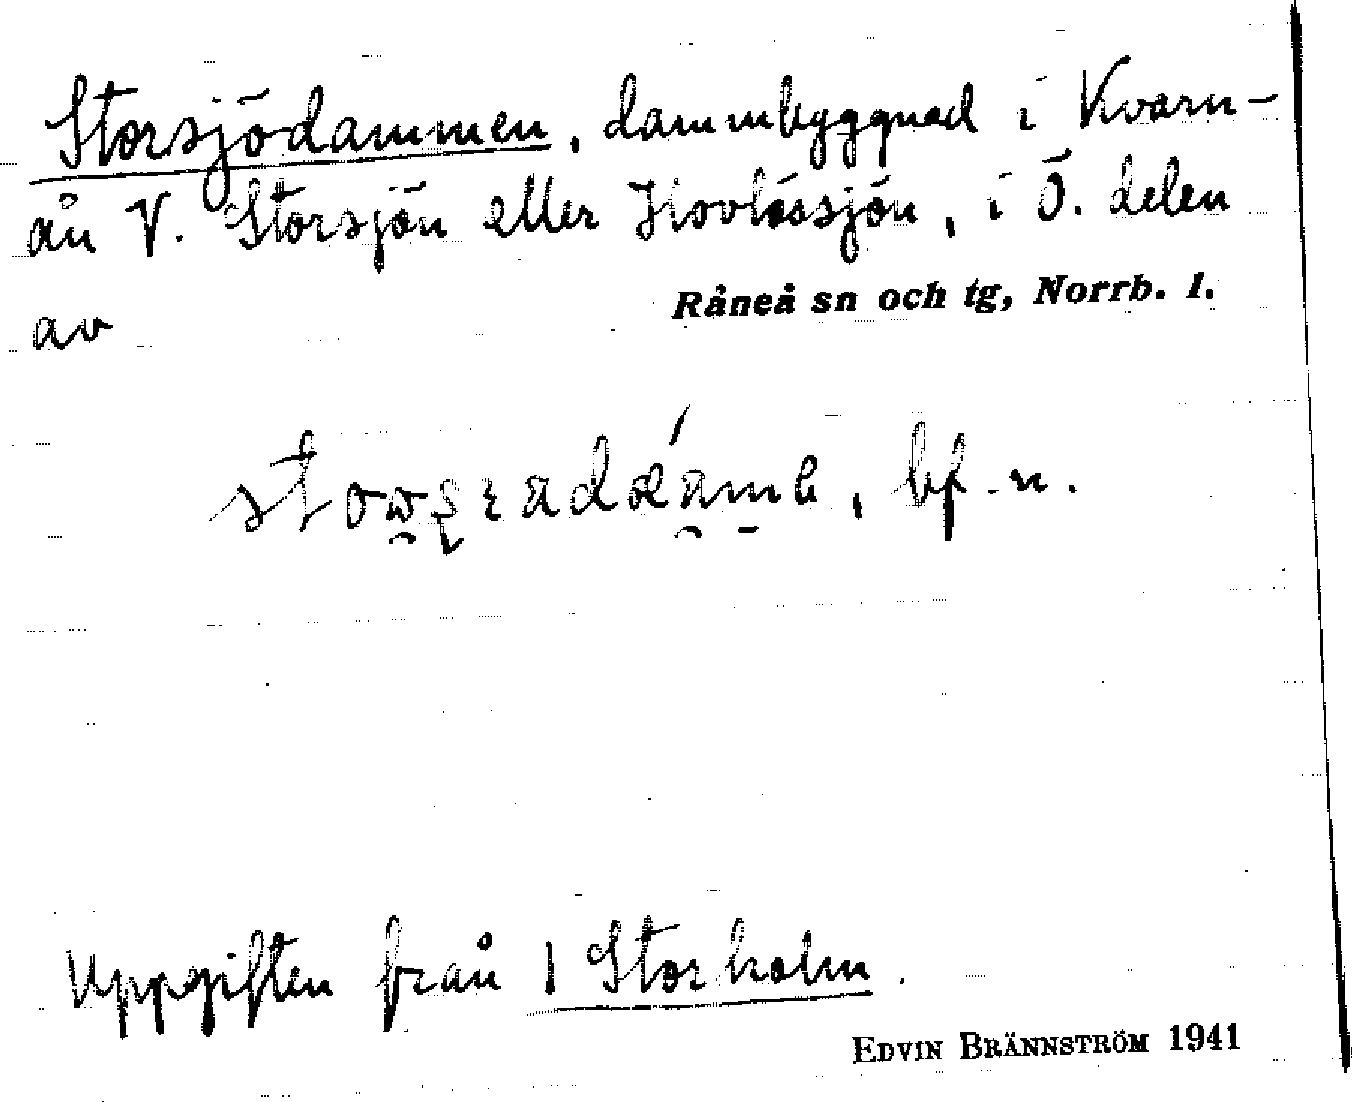 Storsjödammen, dammbyggnad i Kvarn-
ån V. Storsjön eller Hovlössjön, i Ö. delen
av Råneå sn och tg, Norrb. l.
bf. n.
Uppgiften från 1 Storholm.
EDVIN BRÄNNSTRÖM 1941